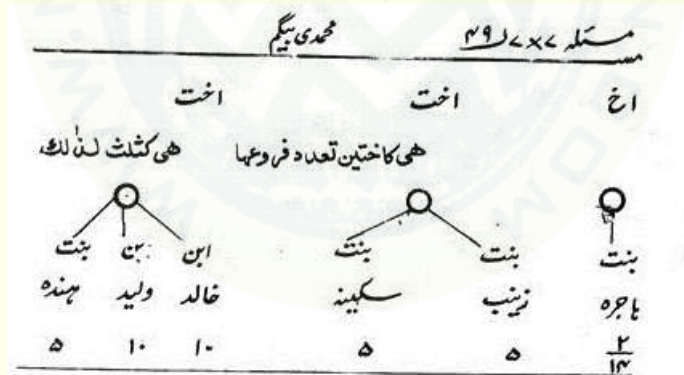 مسئلہ ۷×۷ / ۴۹ محمدی بیگم
اخ اخت اخت
ھی کاختین تعدد فروعھا ھی کثلث لذٰلك
بنت بنت بنت ابن بن بنت
ہاجرہ زینب سکینہ خالد ولید ہندہ
۲ ۵ ۵ ۱۰ ۱۰ ۵
۱۴